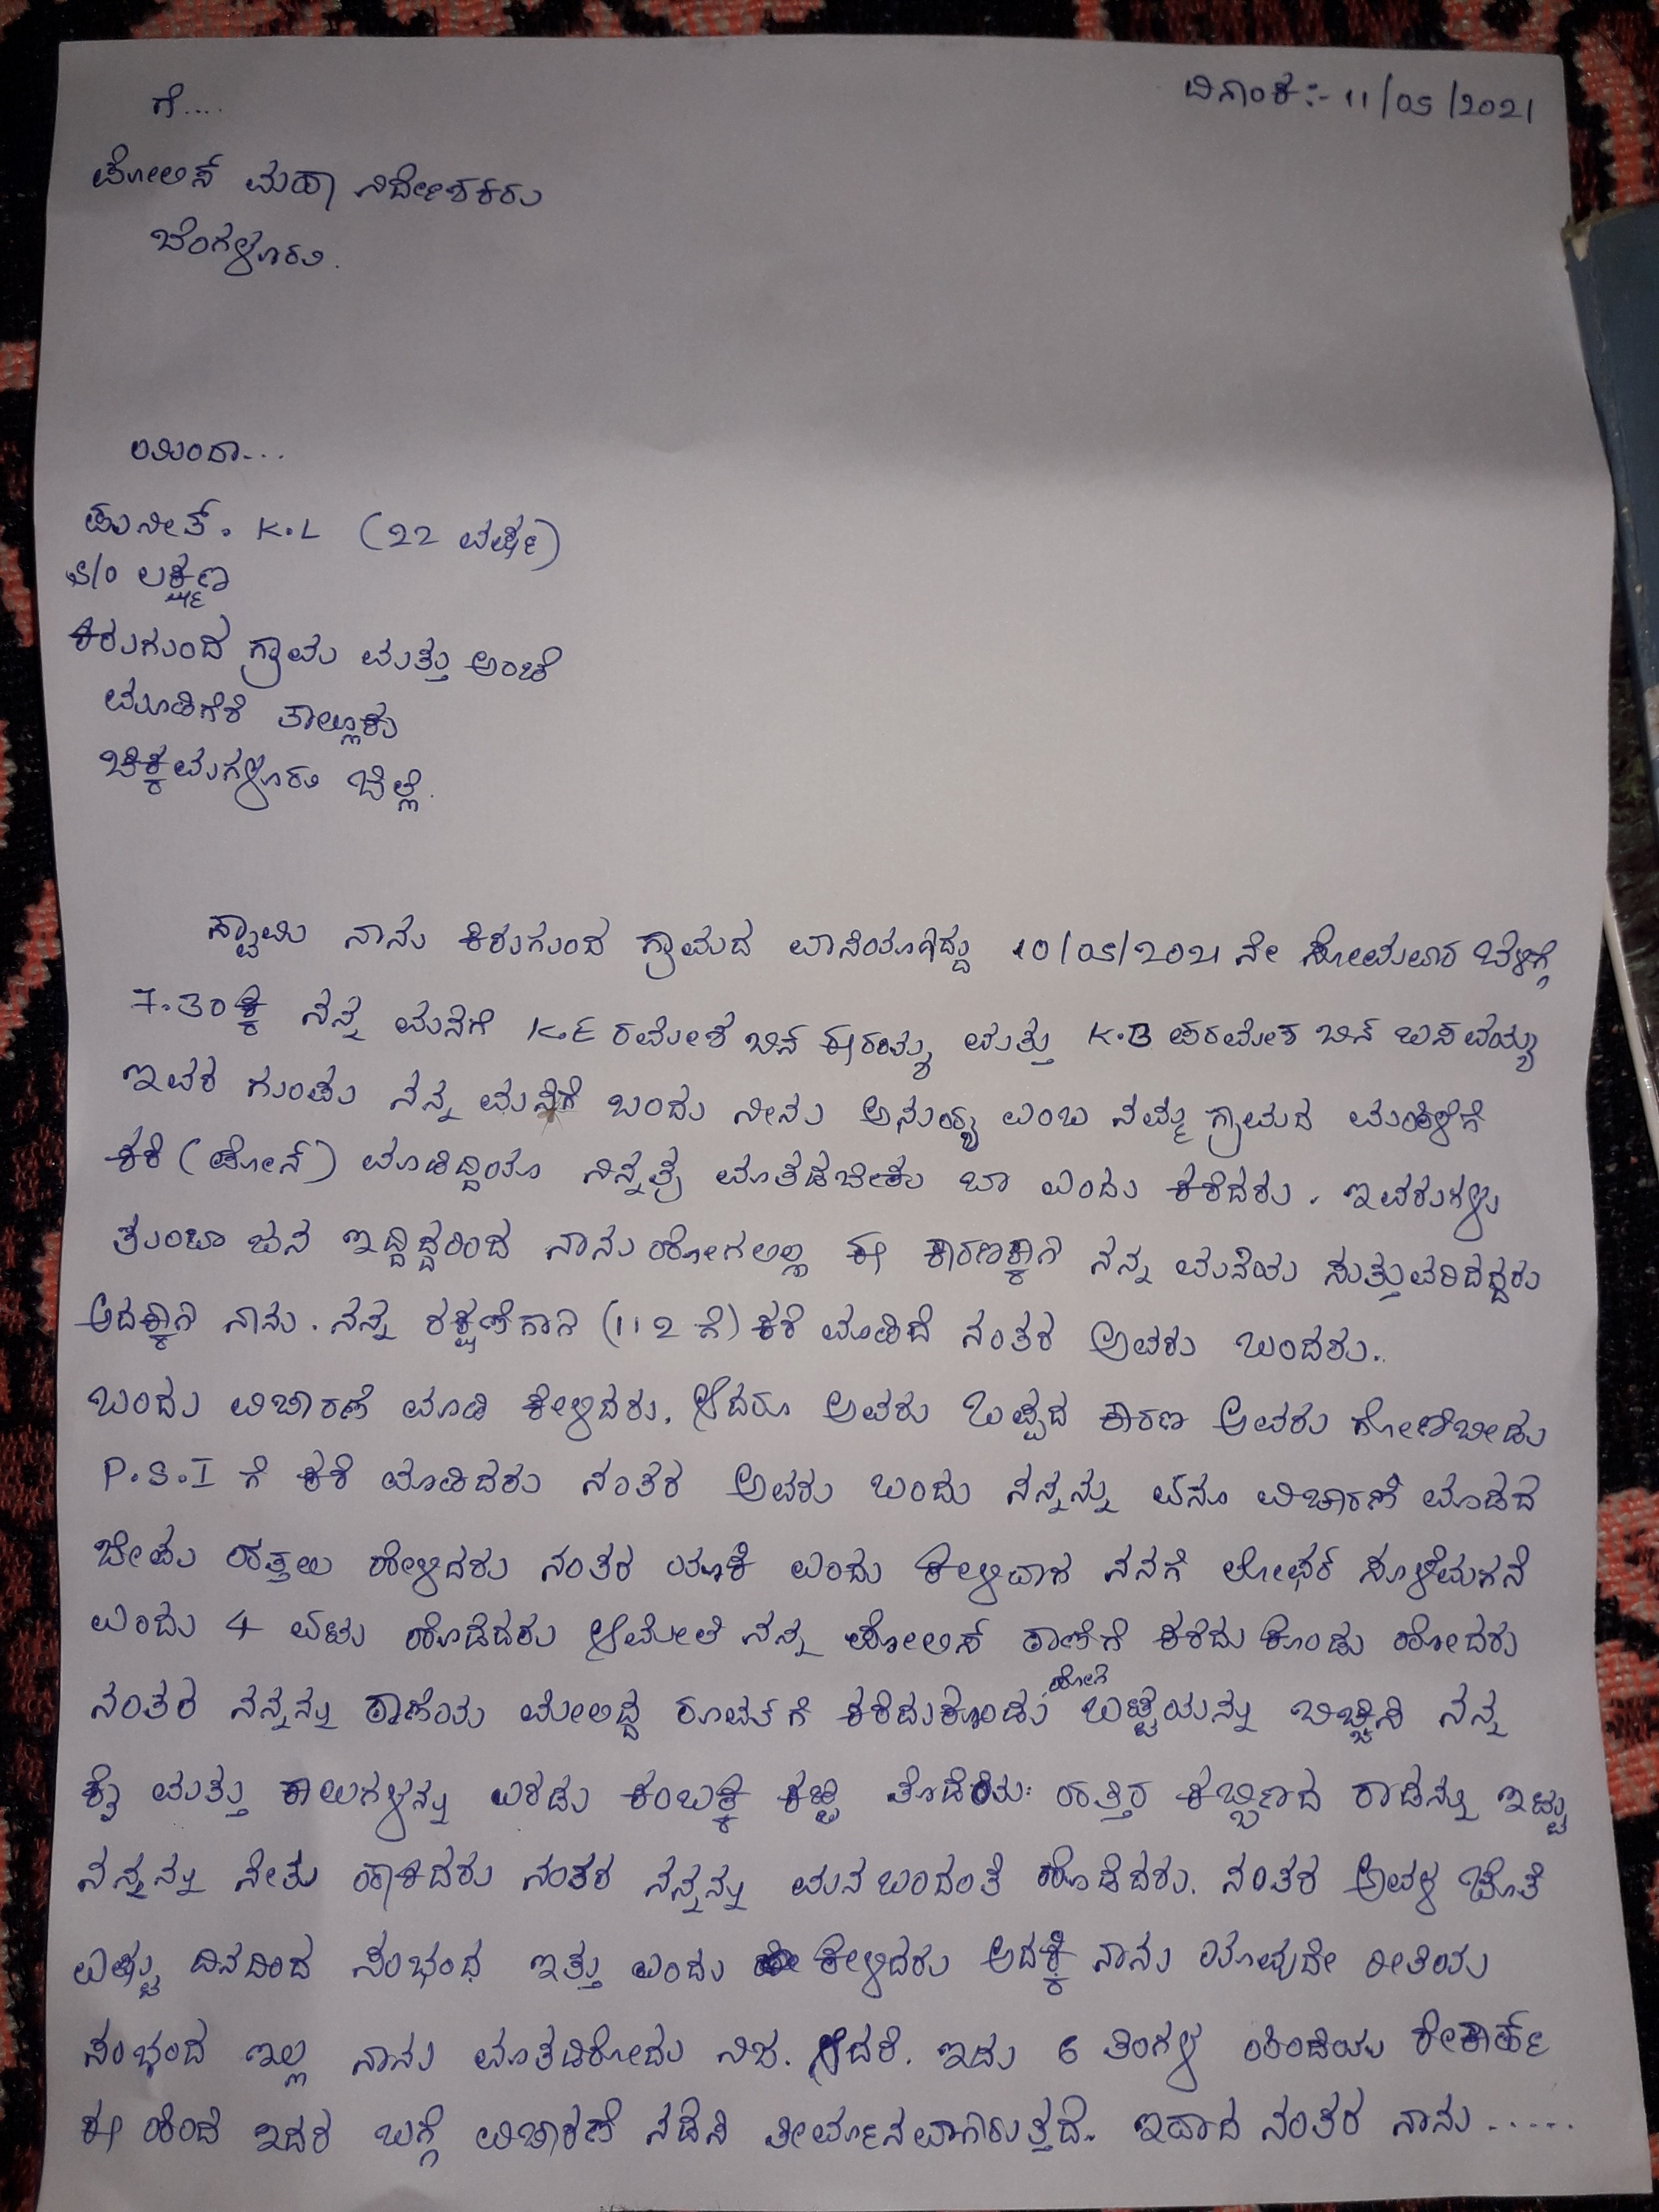 ದಿನಾಂಕ:- 11/05/2021
ಗೆ....
ಪೋಲಿಸ್ ಮಹಾ ನಿರ್ದೇಶಕರು
ಬೆಂಗಳೂರು.
ಯಿಂದಾ...
ಪುನೀತ್. K.L (22 ವರ್ಷ)
S/O ಲಕ್ಷ್ಮಣ
ಕಿರುಗುಂದ ಗ್ರಾಮ ಮತ್ತು ಅಂಚೆ
ಮೂಡಿಗೆರೆ ತಾಲ್ಲೂಕು
ಚಿಕ್ಕಮಗಳೂರು ಜಿಲ್ಲೆ.
ಸ್ವಾಮಿ ನಾನು ಕಿರುಗುಂದ ಗ್ರಾಮದ ವಾಸಿಯಾಗಿದ್ದು 10/05/2021 ನೇ ಸೋಮವಾರ ಬೆಳಿಗ್ಗೆ
7.30ಕ್ಕೆ ನನ್ನ ಮನೆಗೆ K.E ರಮೇಶ ಬಿನ್ ಈರಯ್ಯ ಮತ್ತು K.B ಪರಮೇಶ ಬಿನ್ ಬಸವಯ್ಯ
ಇವರ ಗುಂಪು ನನ್ನ ಮನೆಗೆ ಬಂದು ನೀನು ಅನುಷ್ಯ ಎಂಬ ನಮ್ಮ ಗ್ರಾಮದ ಮಹಿಳೆಗೆ
ಕರೆ (ಪೋನ್) ಮಾಡಿದ್ದಿಯಾ ನಿನ್ನತ್ರ ಮಾತಡಬೇಕು ಬಾ ಎಂದು ಕರೆದರು. ಇವರುಗಳು
ತುಂಬಾ ಜನ ಇದ್ದಿದ್ದರಿಂದ ನಾನು ಹೋಗಲಿಲ್ಲ ಈ ಕಾರಣಕ್ಕಾಗಿ ನನ್ನ ಮನೆಯ ಸುತ್ತುವರಿದಿದ್ದರು
ಅದಕ್ಕಾಗಿ ನಾನು. ನನ್ನ ರಕ್ಷಣೆಗಾಗಿ (112 ಗೆ) ಕರೆ ಮಾಡಿದೆ ನಂತರ ಅವರು ಬಂದರು..
ಬಂದು ವಿಚಾರಣೆ ಮಾಡಿ ಕೇಳಿದರು. ಆದರೂ ಅವರು ಒಪ್ಪದ ಕಾರಣ ಅವರು ಗೋಣಿಬೀಡು
P.S.I ಗೆ ಕರೆ ಮಾಡಿದರು ನಂತರ ಅವರು ಬಂದು ನನ್ನನ್ನು ಏನೂ ವಿಚಾರಣೆ ಮಾಡದೆ
ಜೀಪು ಹತ್ತಲು ಹೇಳಿದರು ನಂತರ ಯಾಕೆ ಎಂದು ಕೇಳಿದಾಗ ನನಗೆ ಲೋಫರ್ ಸೂಳೆಮಗನೆ
ಎಂದು 4 ಏಟು ಹೊಡೆದರು ಆಮೇಲೆ ನನ್ನ ಪೋಲಿಸ್ ಠಾಣೆಗೆ ಕರೆದು ಕೊಂಡು ಹೋದರು
ನಂತರ ನನ್ನನ್ನು ಠಾಣೆಯ ಮೇಲಿದ್ದ ರೂಮ್ ಗೆ ಕರೆದುಕೊಂಡು ಹೋಗಿ ಬಟ್ಟೆಯನ್ನು ಬಿಚ್ಚಿಸಿ ನನ್ನ
ಕೈ ಮತ್ತು ಕಾಲುಗಳನ್ನು ಎರಡು ಕಂಬಕ್ಕೆ ಕಟ್ಟಿ ತೊಡೆಯ ಹತ್ತಿರ ಕಬ್ಬಿಣದ ರಾಡನ್ನು ಇಟ್ಟು
ನನ್ನನ್ನು ನೇತು ಹಾಕಿದರು ನಂತರ ನನ್ನನ್ನು ಮನ ಬಂದಂತೆ ಹೊಡೆದರು. ನಂತರ ಅವಳ ಜೊತೆ
ಎಷ್ಟು ದಿನದಿಂದ ಸಂಭಂಧ ಇತ್ತು ಎಂದು ಕೇಳಿದರು ಅದಕ್ಕೆ ನಾನು ಯಾವುದೇ ರೀತಿಯ
ಸಂಭಂದ ಇಲ್ಲ ನಾನು ಮಾತಡಿರೋದು ನಿಜ. ಆದರೆ. ಇದು 6 ತಿಂಗಳ ಹಿಂದೆಯ ರೇಕಾರ್ಡ್
ಈ ಹಿಂದೆ ಇದರ ಬಗ್ಗೆ ವಿಚಾರಣೆ ನಡೆಸಿ ತೀರ್ಮಾನವಾಗಿರುತ್ತದೆ. ಇದಾದ ನಂತರ ನಾನು ......